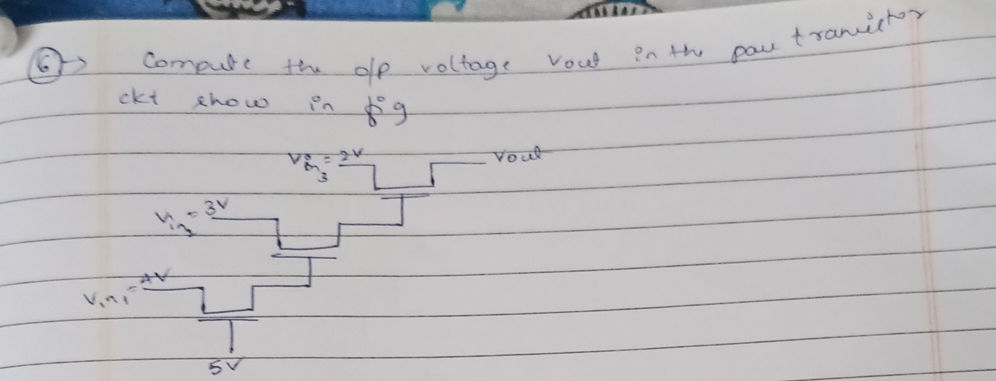 6→ Compute the o/p voltage Vout in the pass transistor
ckt show in fig
Vin3 = 2V
Vout
Vin2 = 3V
Vin1 = 4V
5V